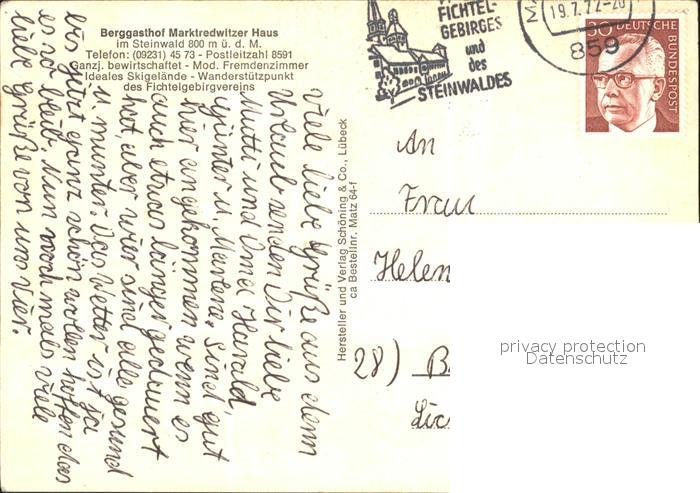 Berggasthof Marktredwitzer Haus
im Steinwald 800 m ü. d. M.
Telefon: (09231) 45 73 - Postleitzahl 8591
Ganzj. bewirtschaftet - Mod. Fremdenzimmer
Ideales Skigelände - Wanderstützpunkt
des Fichtelgebirgvereins
Viele liebe Grüße aus dem
Urlaub senden Dir liebe
Mutti und Oma Harald,
Günter u. Marlene. Sind gut
hier angekommen wenn es
auch etwas länger gedauert
hat, aber wir sind alle gesund
u. munter. Das Wetter ist ja
bis jetzt ganz schön wollen hoffen das
es so bleib. Nun nochmals viele
liebe Grüße von uns vier.
Hersteller und Verlag Schöning & Co., Lübeck
ca Bestellnr. Matz 64-f
FICHTEL-
GEBIRGES
und
des
STEINWALDES
19.7.72-20
859
30 DEUTSCHE
BUNDESPOST
An
Frau
Helen
28) B
Lic
privacy protection
Datenschutz